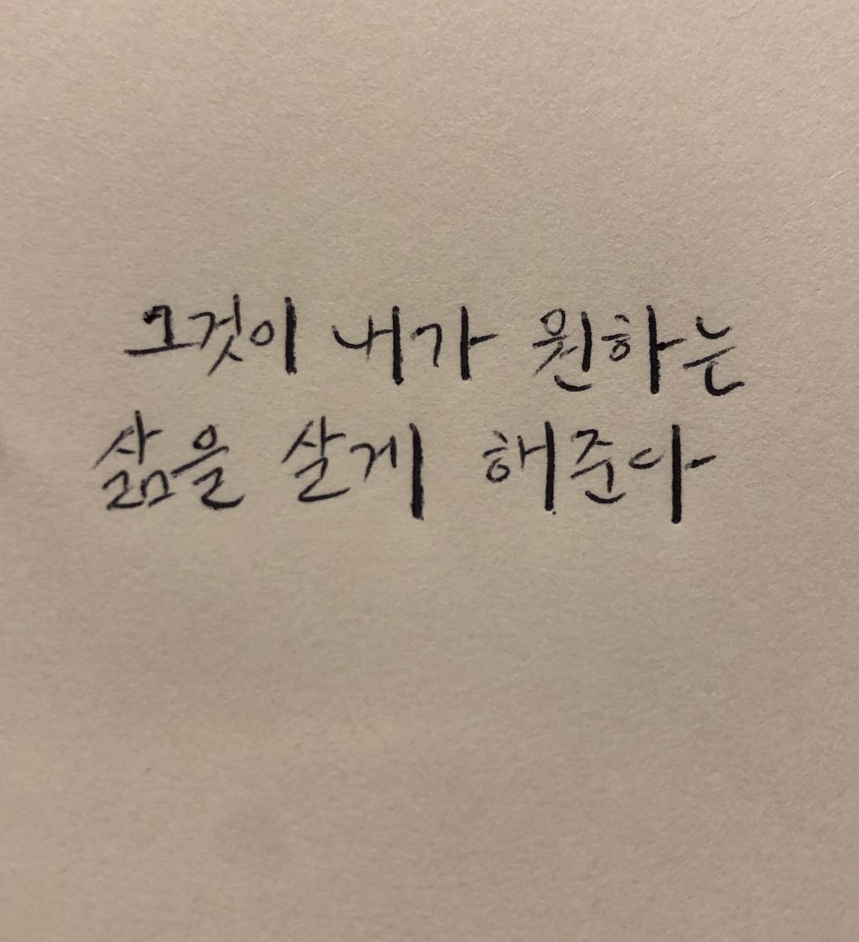 그것이 내가 원하는
삶을 살게 해준다